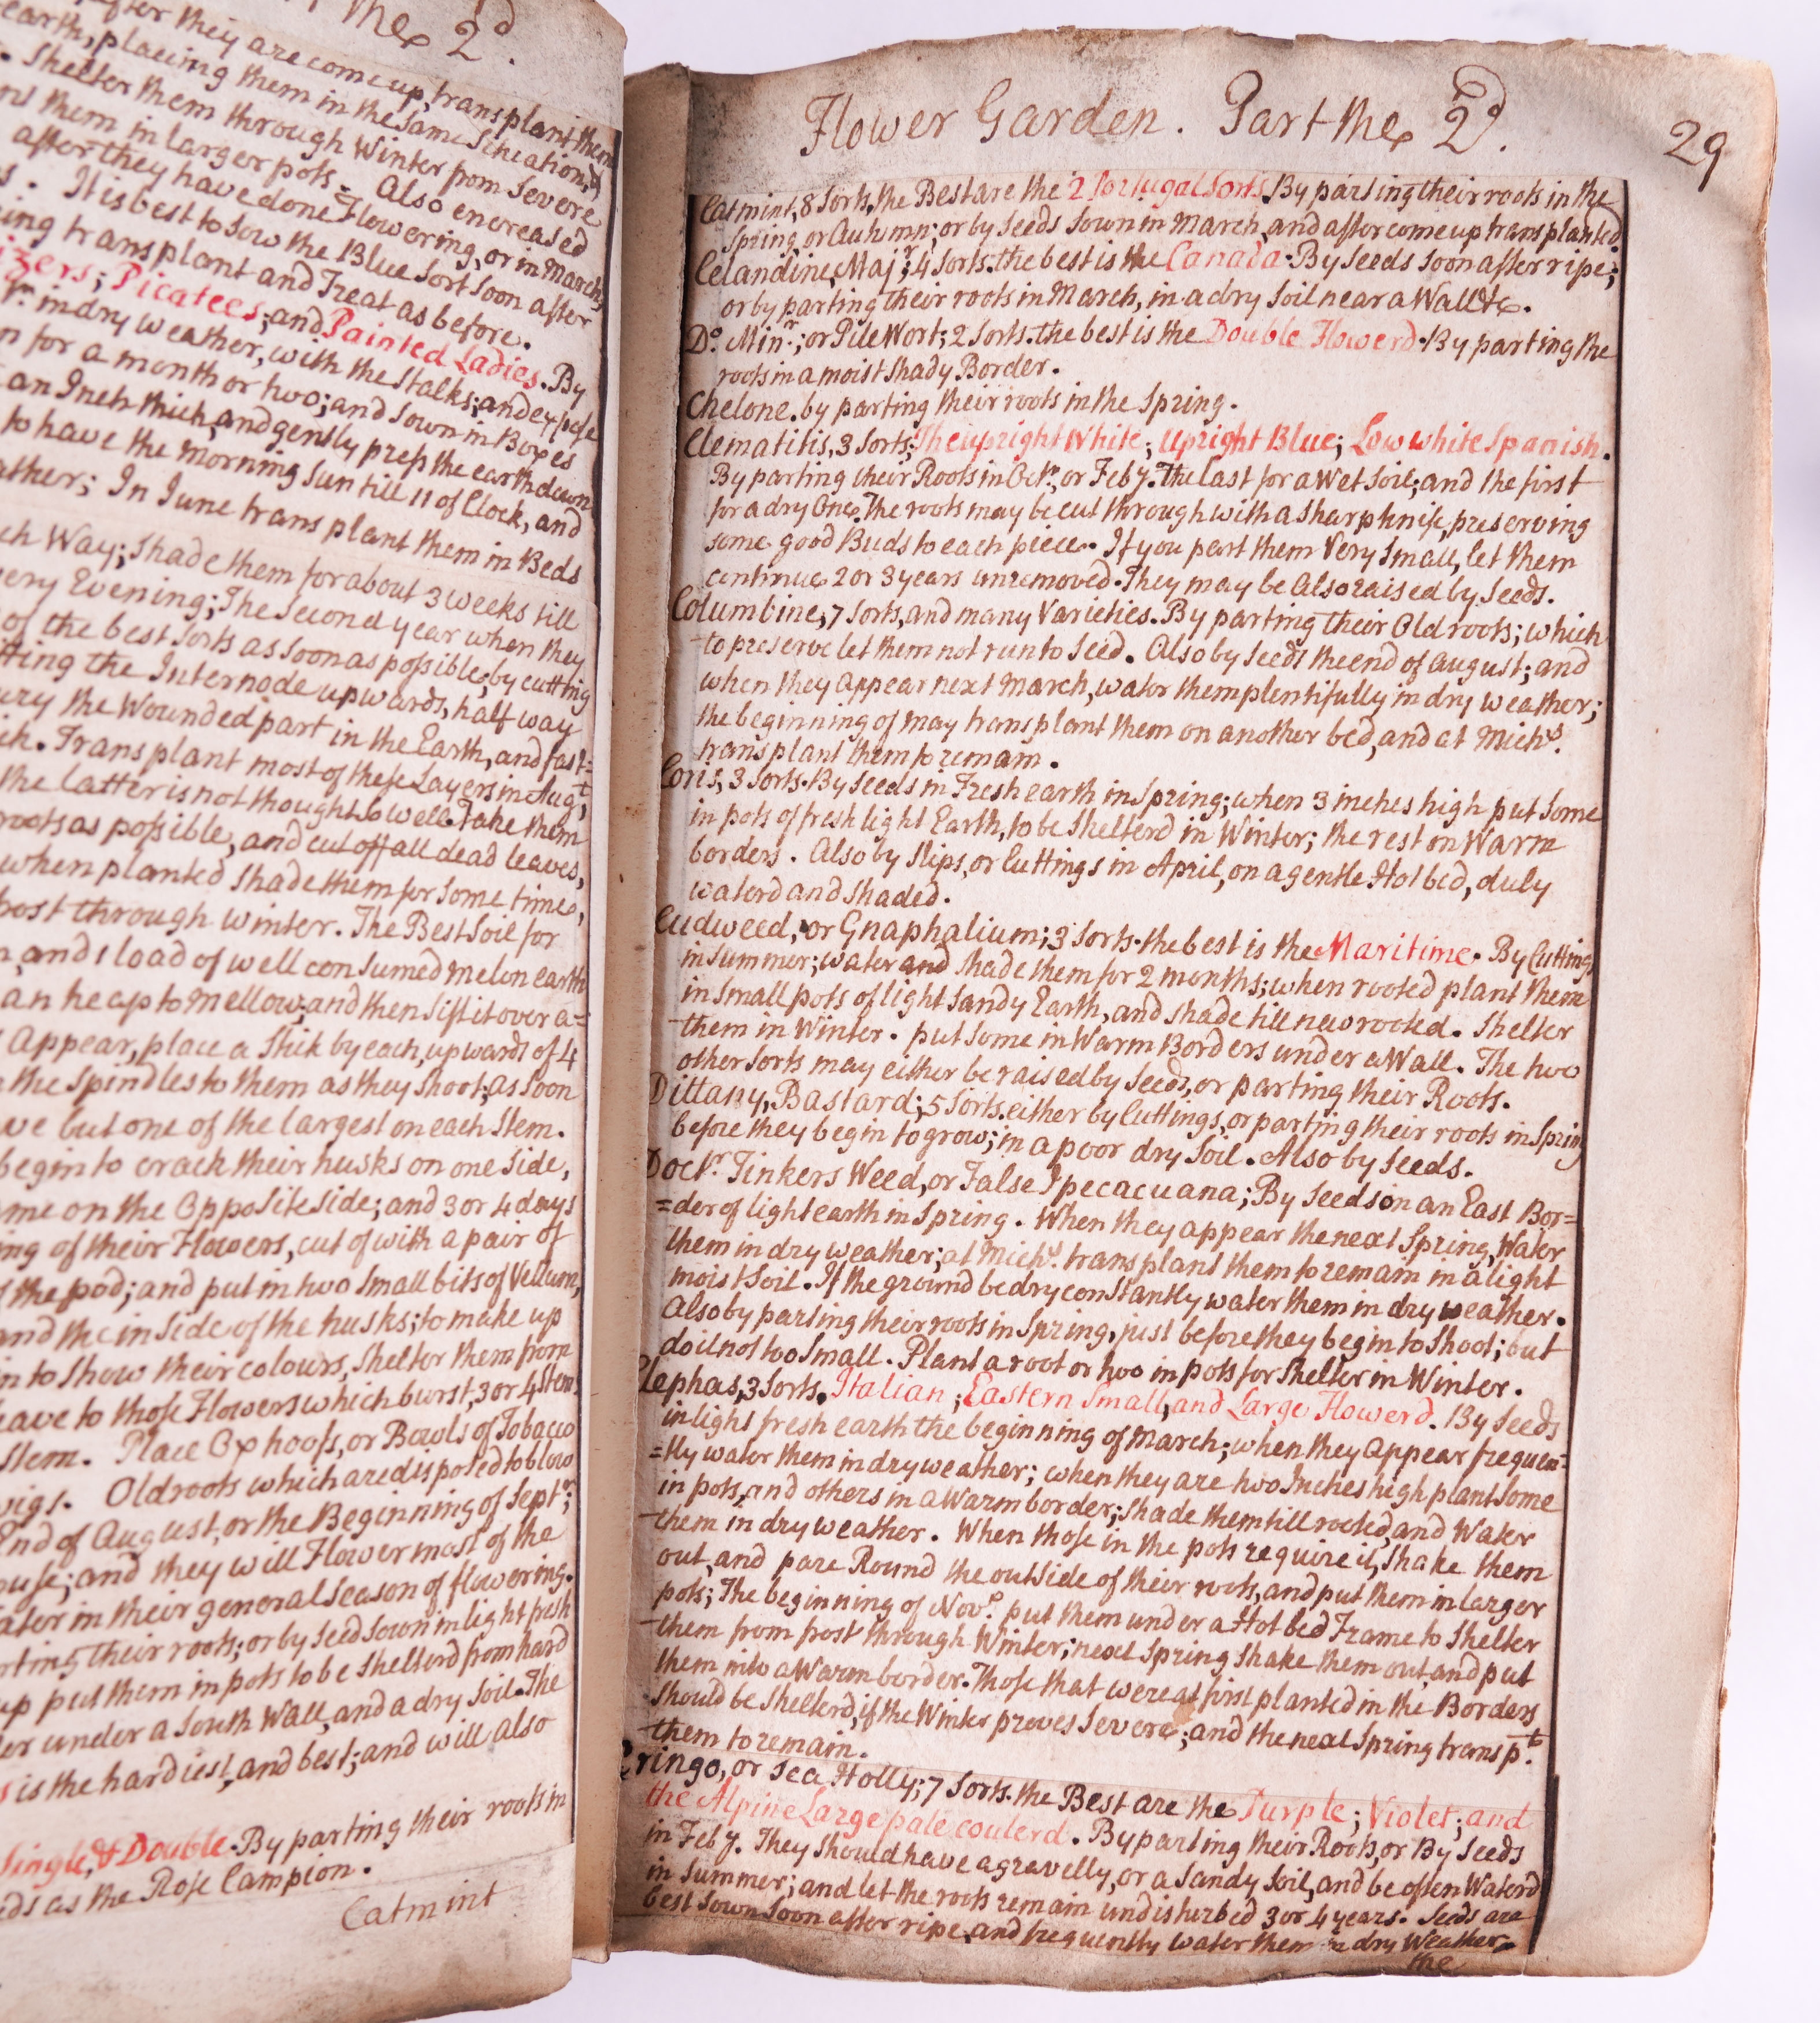 the 2d.
after they are come up, transplant them
earth, placing them in the same Situation, &
Shelter them through Winter from Severe
them in larger pots. Also encreased
after they have done Flowering, or in March,
It is best to sow the Blue Sort soon after
transplant and Treat as before.
Picatees; and Painted Ladies. By
in dry weather, with the Stalks; and expose
for a month or two; and Sown in Boxes
an Inch thick, and gently press the earth down
to have the Morning Sun till 11 of Clock, and
In June transplant them in Beds
Way; Shade them for about 3 weeks till
Evening; The Second year when they
of the best Sorts as soon as possible; by cutting
the Internode upwards, half way
the Wounded part in the Earth, and fast=
Transplant most of these Layers in Augt;
the latter is not thought so well. Take them
roots as possible, and cut off all dead leaves,
when planted shade them for some time,
through winter. The Best Soil for
and 1 load of well consumed melon earth
an heap to mellow; and then sift it over a=
Appear, place a Stick by each, upwards of 4
the Spindles to them as they Shoot; as soon
but one of the largest on each Stem.
begin to crack their husks on one side,
on the Opposite side; and 3 or 4 days
of their Flowers, cut of with a pair of
the pod; and put in two small bits of Vellum,
and the inside of the husks; to make up
to show their colours, Shelter them from
to those Flowers which burst, 3 or 4 Stems
Stem. Place Ox hoofs, or Bowls of Tobacco
Old roots which are disposed to blow
End of August, or the Beginning of Septr;
and they will Flower most of the
in their general Season of flowering.
their roots; or by seed sown in light fresh
up put them in pots to be Shelterd from hard
under a South Wall, and a dry Soil. The
is the hardiest, and best; and will also
Single, & Double. By parting their roots in
as the Rose Campion.
Catmint
Flower Garden. Part the 2d.
29
Catmint, 8 Sorts, the Best are the 2 Portugal Sorts. By parting their roots in the
Spring, or Autumn; or by Seeds Sown in March, and after come up transplanted.
Celandine, Majr; 4 Sorts. the best is the Canada. By Seeds soon after ripe;
or by parting their roots in March, in a dry Soil near a Wall &c.
Do. Minr; or Pile Wort; 2 Sorts. the best is the Double Flowerd. By parting the
roots in a moist shady Border.
Chelone. by parting their roots in the Spring.
Clematitis, 3 Sorts; The upright White; Upright Blue; Low white Spanish.
By parting their Roots in Octr, or Feby. The last for a Wet Soil; and the first
for a dry One. The roots may be cut through with a sharp knife, preserving
some good Buds to each piece. If you part them Very Small, let them
continue 2 or 3 years unremoved. They may be Also raised by Seeds.
Columbine, 7 Sorts, and many Varieties. By parting their Old roots; which
to preserve let them not run to Seed. Also by Seeds the end of August; and
when they Appear next March, water them plentifully in dry weather;
the beginning of may transplant them on another bed, and at Michs.
transplant them to remain.
Coris, 3 Sorts. By Seeds in Fresh earth in Spring; when 3 inches high put some
in pots of fresh light Earth, to be Shelterd in Winter; the rest on Warm
borders. Also by Slips, or Cuttings in April, on a gentle Hot bed, duly
waterd and shaded.
Cudweed, or Gnaphalium; 3 Sorts. the best is the Maritime. By Cuttings
in summer; water and shade them for 2 months; when rooted plant them
in small pots of light Sandy Earth, and shade till new rooted. Shelter
them in Winter. put some in Warm Borders under a Wall. The two
other Sorts may either be raised by Seeds, or parting their Roots.
Dittany, Bastard; 5 Sorts. either by Cuttings, or parting their roots in Spring
before they begin to grow; in a poor dry Soil. Also by Seeds.
Doctr. Tinkers Weed, or False Ipecacuana; By Seeds on an East Bor=
=der of light earth in Spring. When they appear the next Spring, Water
them in dry weather; at Michs. transplant them to remain in a light
moist Soil. If the ground be dry constantly water them in dry weather.
Also by parting their roots in Spring, just before they begin to Shoot; but
do it not too Small. Plant a root or two in pots for Shelter in Winter.
Elephas, 3 Sorts. Italian; Eastern Small, and Large Flowerd. By Seeds
in light fresh earth the beginning of March; when they Appear frequen=
=tly water them in dry weather; when they are two Inches high plant some
in pots, and others in a Warm border; shade them till rooted, and Water
them in dry weather. When those in the pots require it, Shake them
out, and pare Round the outside of their roots, and put them in larger
pots; The beginning of Novr. put them under a Hot bed Frame to Shelter
them from frost through Winter; next Spring shake them out, and put
them into a Warm border. Those that were at first planted in the Borders
should be Shelterd, if the Winter proves Severe; and the next Spring transpt.
them to remain.
Eringo, or Sea Holly; 7 Sorts. the Best are the Purple; Violet; and
the Alpine Large pale coulerd. By parting their Roots, or By Seeds
in Feby. They Should have a gravelly, or a Sandy Soil, and be often Waterd
in Summer; and let the roots remain undisturbed 3 or 4 years. Seeds are
best sown soon after ripe, and frequently water them in dry Weather.
the